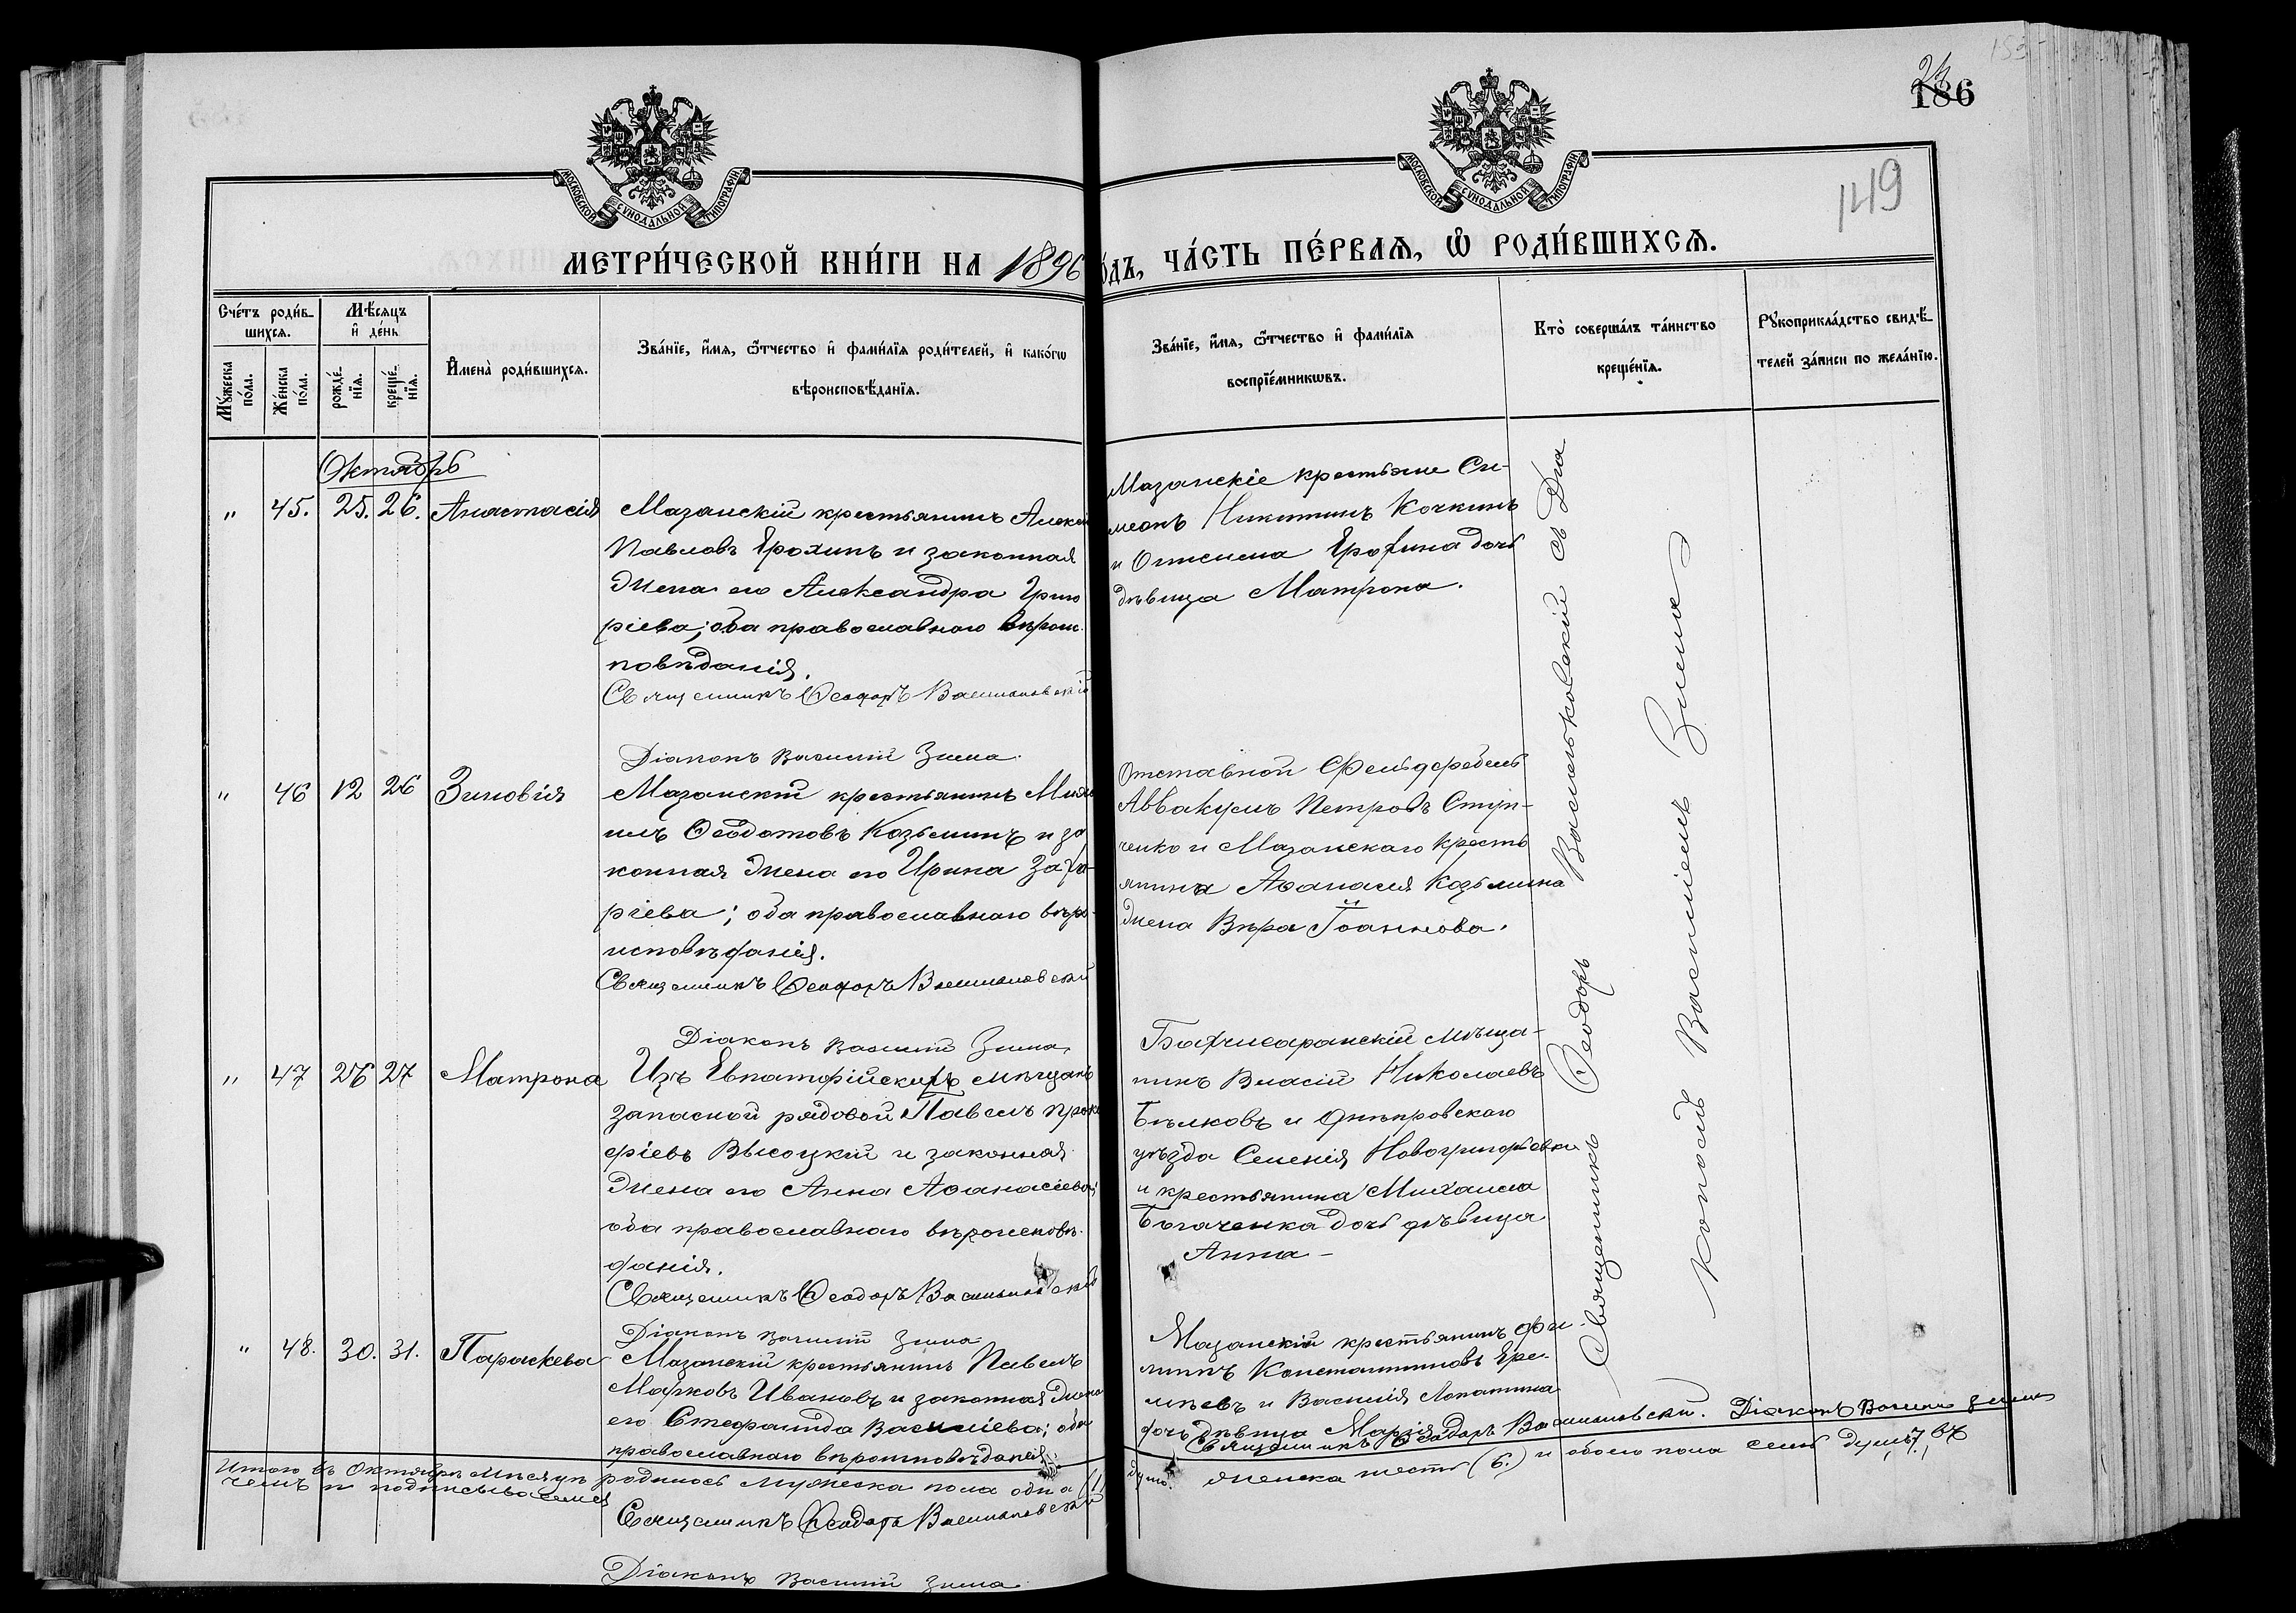 153
24
186
149
МОСКОВСКОЙ СѴНОДАЛЬНОЙ ТИПОГРАФІИ
МОСКОВСКОЙ СѴНОДАЛЬНОЙ ТИПОГРАФІИ
МЕТРИ́ЧЕСКОЙ КНИ́ГИ НА 1896
ГО́ДЪ, ЧА́СТЬ ПЕ́РВАЯ, Ѡ РОДИ́ВШИХСЯ.
Сче́тъ роди́в-
шихся.
Мѣ́сяцъ
и де́нь
Му́жеска
по́ла.
Же́нска
по́ла.
рожде́-
нія.
креще́-
нія.
Имена̀ роди́вшихся.
Зва́ніе, и́мя, ѻ́тчество и фами́лія роди́телей, и како́гѡ
вѣроисповѣ́данія.
Зва́ніе, и́мя, ѻ́тчество и фами́лія
воспріе́мникѡвъ.
Кто̀ соверша́лъ та́инство
креще́нія.
Рукоприкла́дство свидѣ́-
телей за́писи по жела́нію.
Октябрь
" 45. 25. 26. Анастасія
Мазанскій крестьянинъ Алексѣй
Павловъ Ерохинъ и законная
жена его Александра Григо
ріева; оба православнаго вѣроис-
повѣданія.
Священникъ Ѳеодоръ Васильковскій
Діаконъ Василій Зима.
Мазанскіе крестьяне Си-
меонъ Никитинъ Кочкинъ
и Онисима Ерохина дочь
дѣвица Матрона.
" 46 12 26 Зиновія
Мазанскій крестьянинъ Миха
илъ Ѳеодотовъ Козьминъ и за
конная жена его Ирина Заха-
ріева; оба православнаго вѣро-
исповѣданія.
Священникъ Ѳеодоръ Васильковскій
Діаконъ Василій Зима.
Отставной Фельдфебель
Аввакумъ Петровъ Ступ-
ченко и Мазанскаго кресть
янина Аѳанасія Козьмина
жена Вѣра Іоаннова.
" 47 26 27 Матрона
Изъ Евпаторійскихъ мѣщанъ
запасной рядовой Павелъ Проко
фіевъ Высоцкій и законная
жена его Анна Аѳанасіева;
оба православнаго вѣроисповѣ-
данія.
Священникъ Ѳеодоръ Васильковскій
Діаконъ Василій Зима
Бахчисарайскій мѣща-
нинъ Власій Николаевъ
Бѣлковъ и Днѣпровскаго
уѣзда Селенія Новогригорьевки
и крестьянина Михаила
Богаченка дочь дѣвица
Анна -
" 48. 30. 31. Параскева
Мазанскій крестьянинъ Павелъ
Марковъ Ивановъ и законная жена
его Стефанида Василіева; оба
православнаго вѣроисповѣданія.
Мазанскій крестьянинъ Фи-
липпъ Константиновъ Ере-
мѣевъ и Василія Лопатина
дочь дѣвица Марія
Священникъ Ѳеодоръ Васильковскій съ Діа
кономъ Василіемъ Зимою
Священникъ Ѳеодоръ Васильковскій. Діаконъ Василій Зима
Итого въ Октябрѣ мѣсяцѣ родилось мужеска пола одна (1)
душа женска шесть (6.) и обоего пола семь душъ 7., въ
чемъ и подписываемся
Священникъ Ѳеодоръ Васильковскій
Діаконъ Василій Зима.